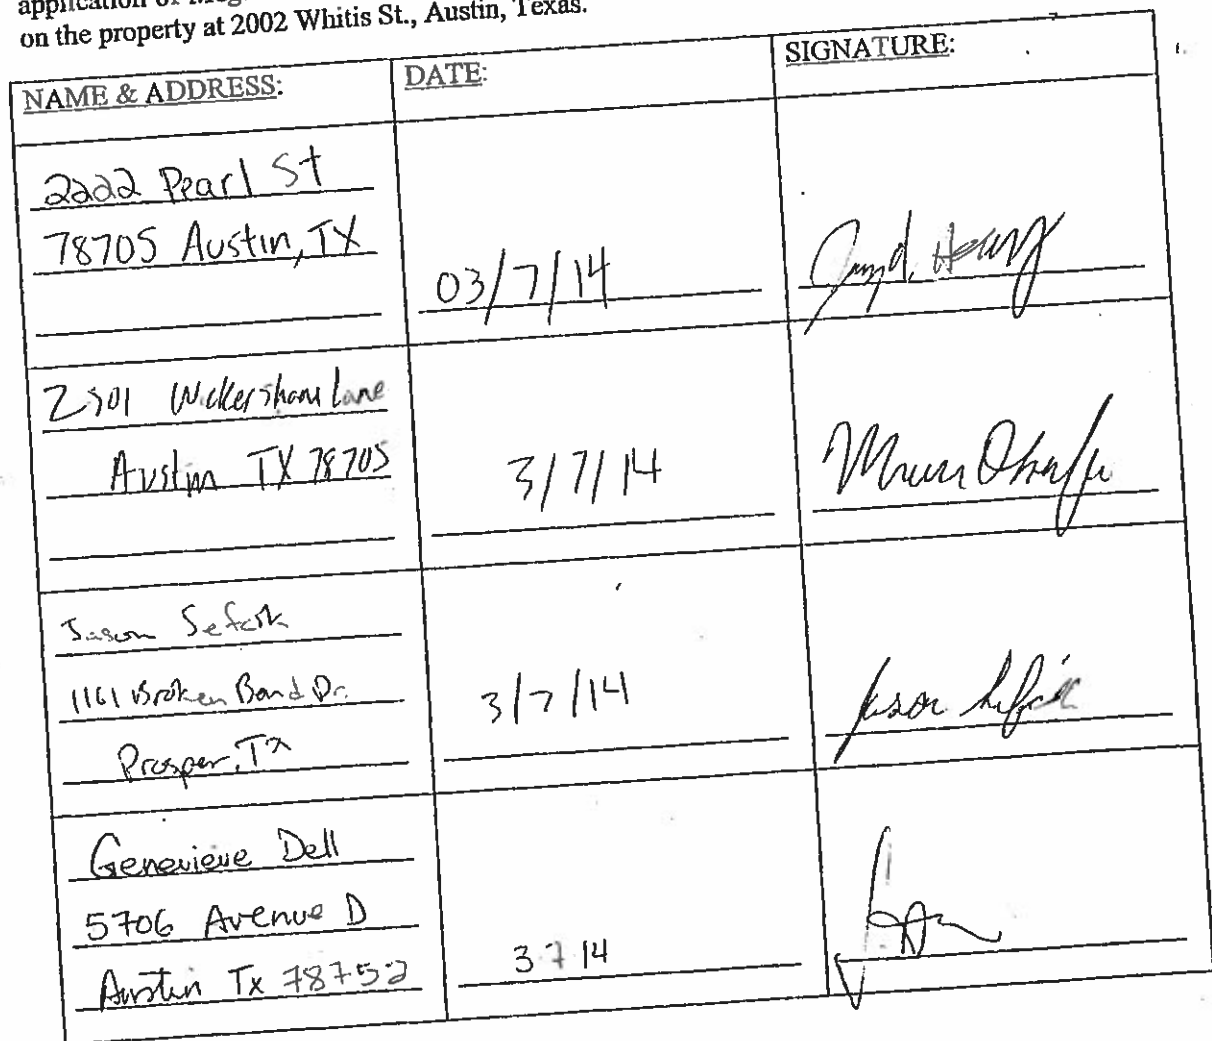 application of
on the property at 2002 Whitis St., Austin, Texas.
NAME & ADDRESS: DATE: SIGNATURE:
2222 Pearl St
78705 Austin, TX
03/7/14
2501 Wickersham Lane
Austin TX 78705
3/7/14
Jason Sefcik
1161 Broken Bend Dr.
Prosper, Tx
3/7/14
Jason Sefcik
Genevieve Dell
5706 Avenue D
Austin Tx 78752
3 7 14